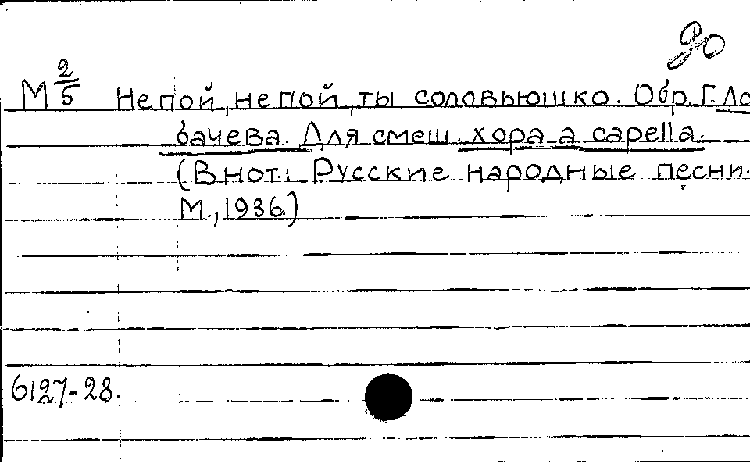 90
М 2/5 Не пой, не пой, ты соловьюшко. Обр. Г. Ло
бачева. Для смеш. хора a capella.
(В нот.: Русские народные песни.
М., 1936.)
6127-28.